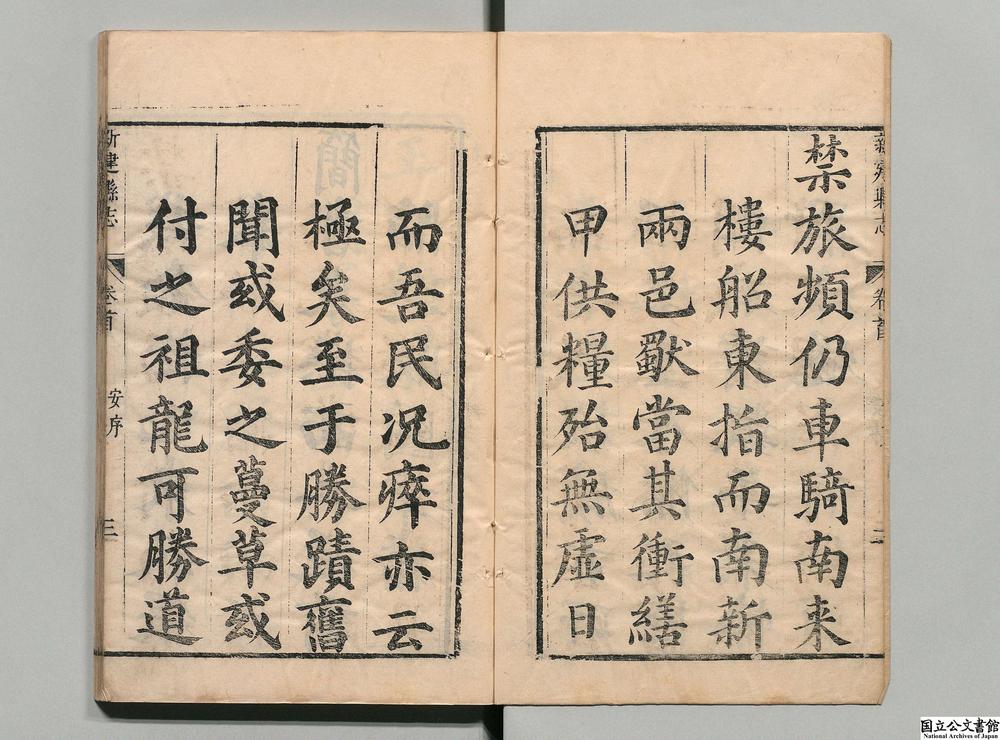 新建縣志 卷首 二
禁旅頻仍車騎南来
樓船東指而南新
兩邑歜當其衝繕
甲供糧殆無虛日
而吾民况瘁亦云
極矣至于勝蹟舊
聞或委之蔓草或
付之祖龍可勝道
新建縣志 卷首 安序 三
国立公文書館
National Archives of Japan